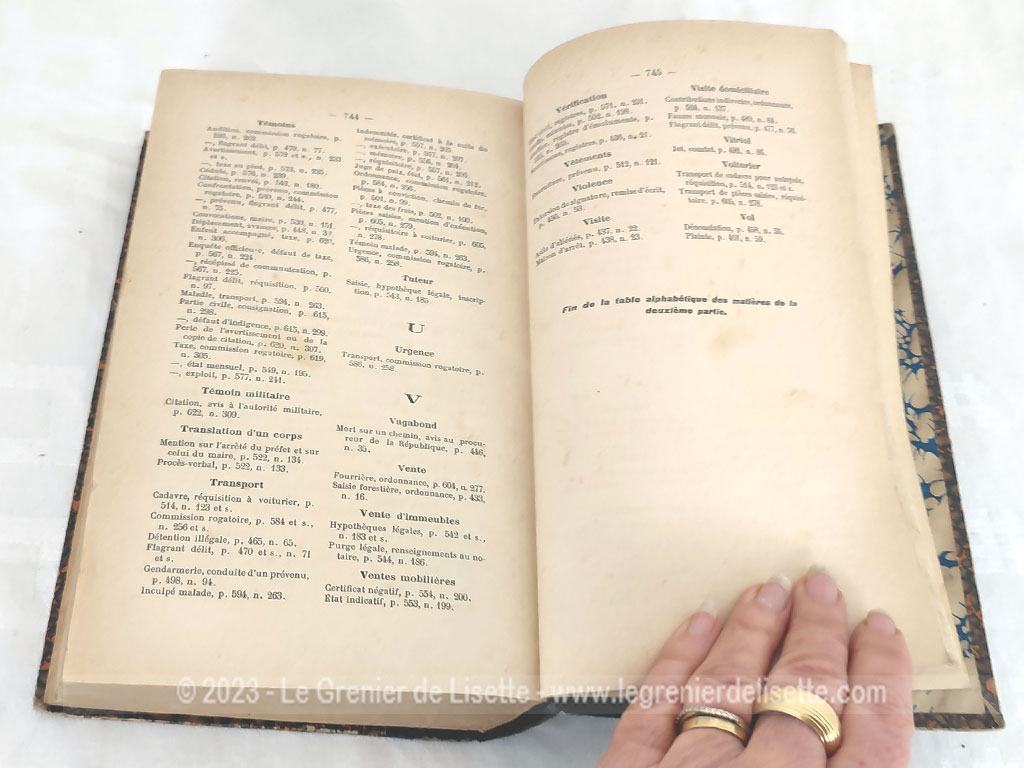 — 744 —
Témoins
Audition, commission rogatoire, p.
593, n. 262.
—, flagrant délit, p. 479, n. 77.
Avertissement, p. 572 et s., n. 233
et s.
—, taxe au pied, p. 523, n. 235.
Cédule, p. 576, n. 239
Citation, renvoi, p. 542, n. 180.
Confrontation, prévenu, commission
rogatoire, p. 580, n. 244.
—, prévenu, flagrant délit, p. 477,
n. 75.
Convocations, maire, p. 530, n. 151.
Déplacement, avances, p. 448, n. 37
Enfant accompagné, taxe, p. 620,
n. 306.
Enquête officieuse, défaut de taxe,
p. 567, n. 224.
—, récépissé de communication, p.
567, n. 225.
Flagrant délit, réquisition, p. 500,
n. 97.
Maladie, transport, p. 594, n. 263.
Partie civile, consignation, p. 615,
n. 298.
—, défaut d'indigence, p. 615, n. 299.
Perte de l'avertissement ou de la
copie de citation, p. 620, n. 307.
Taxe, commission rogatoire, p. 619,
n. 305.
—, état mensuel, p. 549, n. 195.
—, exploit, p. 577, n. 241.
Témoin militaire
Citation, avis à l'autorité militaire,
p. 622, n. 309.
Translation d'un corps
Mention sur l'arrêté du préfet et sur
celui du maire, p. 522, n. 134.
Procès-verbal, p. 522, n. 133.
Transport
Cadavre, réquisition à voiturier, p.
514, n. 123 et s.
Commission rogatoire, p. 584 et s.,
n. 256 et s.
Détention illégale, p. 465, n. 65.
Flagrant délit, p. 470 et s., n. 71
et s.
Gendarmerie, conduite d'un prévenu,
p. 498, n. 94.
Inculpé malade, p. 594, n. 263.
Indemnités, certificat à la suite du
mémoire, p. 557, n. 205.
—, exécutoire, p. 557, n. 207.
—, mémoire, p. 556, n. 204.
—, réquisitoire, p. 557, n. 206.
Juge de paix, état, p. 561, n. 212.
Ordonnance, commission rogatoire,
p. 584, n. 256.
Pièces à conviction, chemin de fer,
p. 501, n. 99.
—, taxe des frais, p. 502, n. 100.
Pièces saisies, mention d'exécution,
p. 605, n. 279.
—, réquisitoire à voiturier, p. 605,
n. 278.
Témoin malade, p. 594, n. 263.
Urgence, commission rogatoire, p.
586, n. 258.
Tuteur
Saisie, hypothèque légale, inscrip-
tion, p. 543, n. 185.
U
Urgence
Transport, commission rogatoire, p.
586, n. 258.
V
Vagabond
Mort sur un chemin, avis au procu-
reur de la République, p. 446,
n. 35.
Vente
Fourrière, ordonnance, p. 604, n. 277.
Saisie forestière, ordonnance, p. 433,
n. 16.
Vente d'immeubles
Hypothèques légales, p. 542 et s.,
n. 183 et s.
Purge légale, renseignements au no-
taire, p. 544, n. 186.
Ventes mobilières
Certificat négatif, p. 554, n. 200.
État indicatif, p. 553, n. 199.
— 745 —
Vérification
registres, p. 571, n. 231.
minutes, p. 552, n. 198.
registre d'émoluments, p.
registres, p. 436, n. 21.
Vêtements
prévenu, p. 512, n. 121.
Violence
Extorsion de signature, remise d'écrit,
p. 456, n. 53.
Visite
Asile d'aliénés, p. 437, n. 22.
Maison d'arrêt, p. 438, n. 23.
Visite domiciliaire
Contributions indirectes, ordonnance,
p. 524, n. 137.
Fausse monnaie, p. 489, n. 84.
Flagrant délit, prévenu, p. 477, n. 76.
Vitriol
Jet, constat, p. 492, n. 86.
Voiturier
Transport de cadavre pour autopsie,
réquisition, p. 514, n. 123 et s.
Transport de pièces saisies, réquisi-
toire, p. 605, n. 278.
Vol
Dénonciation, p. 458, n. 55.
Plainte, p. 461, n. 59.
Fin de la table alphabétique des matières de la
deuxième partie.
© 2023 - Le Grenier de Lisette - www.legrenierdelisette.com